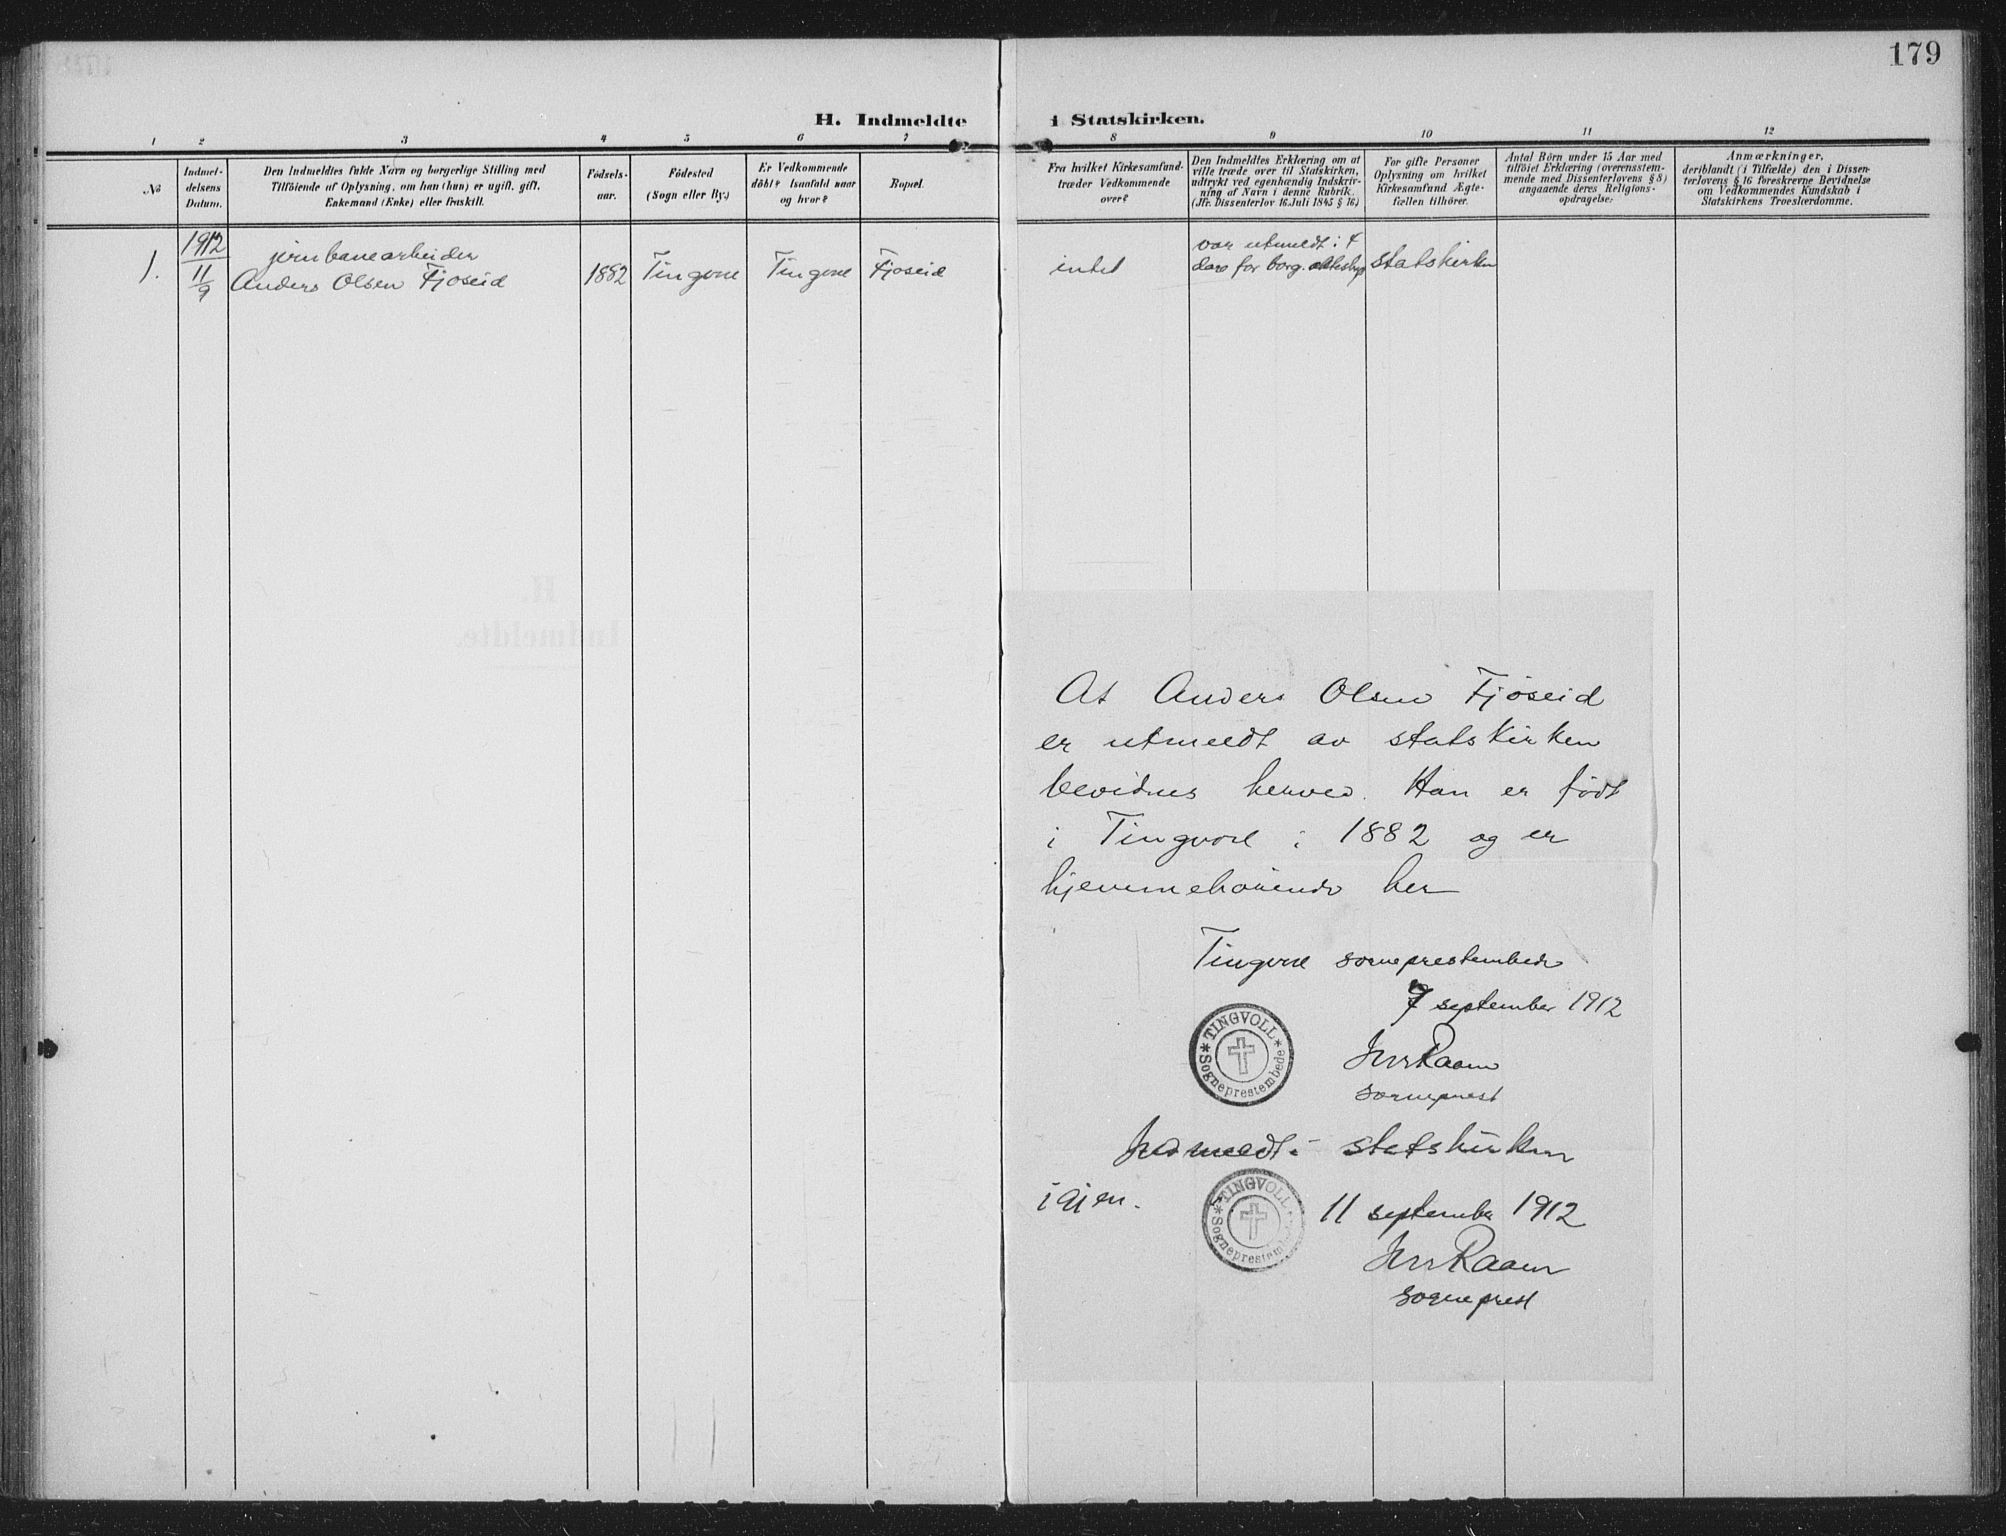 179
H. Indmeldte i Statskirken.
1 2 3 4 5 6 7 8 9 10 11 12
No
Indmel-
delsens
Datum.
Den Indmeldtes fulde Navn og borgerlige Stilling med
Tilföiende af Oplysning, om han (hun) er ugift, gift,
Enkemand (Enke) eller fraskilt.
Födsels-
aar.
Födested
(Sogn eller By.)
Er Vedkommende
döbt? Isaafald naar
og hvor?
Bopæl.
Fra hvilket Kirkesamfund
træder Vedkommende
over?
Den Indmeldtes Erklæring om at
ville træde over til Statskirken,
udtrykt ved egenhændig Indskriv-
ning af Navn i denne Rubrik.
(Jfr. Dissenterlov 16. Juli 1845 § 16.)
For gifte Personer
Oplysning om hvilket
Kirkesamfund Ægte-
fællen tilhörer.
Antal Börn under 15 Aar med
tilföiet Erklæring (overensstem-
mende med Dissenterlovens § 8)
angaaende deres Religions-
opdragelse:
Anmærkninger,
deriblandt (i Tilfælde) den i Dissen-
terlovens § 16 foreskrevne Bevidnelse
om Vedkommendes Kundskab i
Statskirkens Troeslærdomme.
1.
1912
11/9
jernbanearbeider
Anders Olsen Fjøseid
1882
Tingvoll
Tingvoll
Fjøseid
intet
var utmeldt i 4
dage for borg. ekteskap
statskirken
At Anders Olsen Fjøseid
er utmeldt av statskirken
bevidnes herved. Han er født
i Tingvoll i 1882 og er
hjemmehørende her
Tingvoll sogneprestembede
7 september 1912
TINGVOLL
Sogneprestembede
sogneprest
Indmeldt i statskirken
igjen.
TINGVOLL
Sogneprestembede
11 september 1912
sogneprest